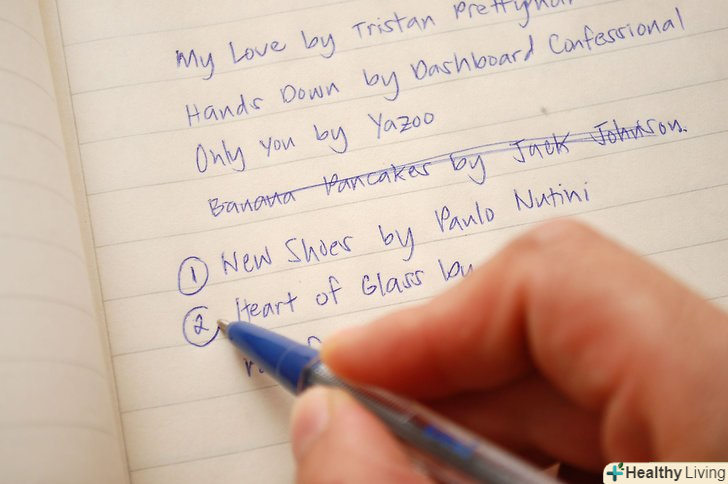 My Love by Tristan
Hands Down by Dashboard Confessional
Only you by Yazoo
Banana Pancakes by Jack Johnson.
① New Shoes by Paulo Nutini
② Heart of Glass by
Healthy Living